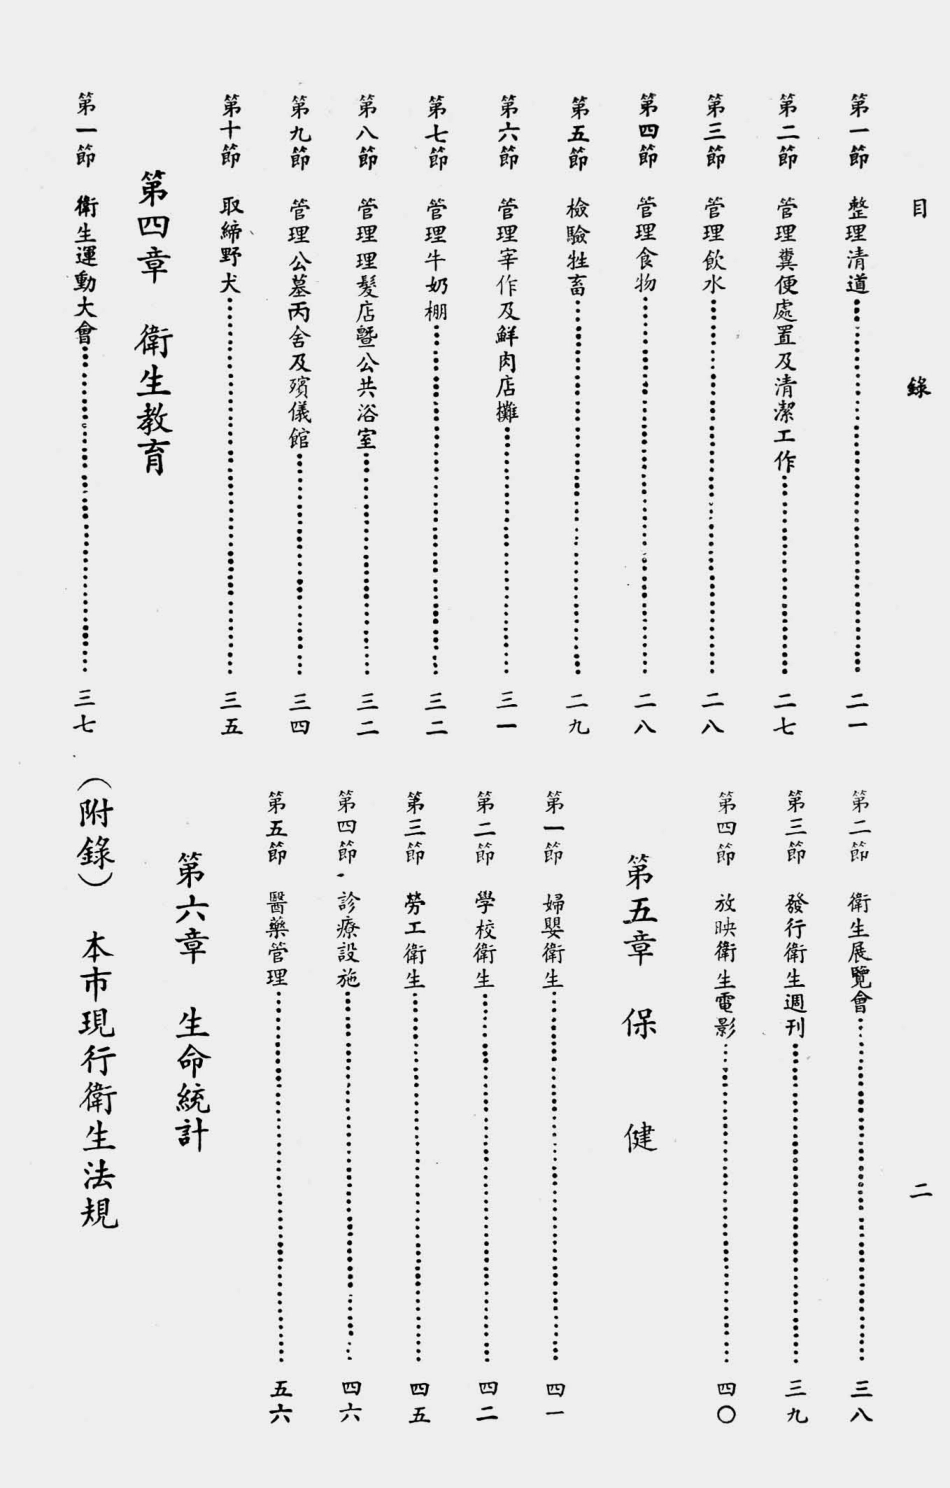 目錄
二
第一節 整理清道 二一
第二節 管理糞便處置及清潔工作 二七
第三節 管理飲水 二八
第四節 管理食物 二八
第五節 檢驗牲畜 二九
第六節 管理宰作及鮮肉店攤 三一
第七節 管理牛奶棚 三二
第八節 管理理髮店曁公共浴室 三二
第九節 管理公墓丙舍及殯儀館 三四
第十節 取締野犬 三五
第四章 衛生教育
第一節 衛生運動大會 三七
第二節 衛生展覽會 三八
第三節 發行衛生週刊 三九
第四節 放映衛生電影 四〇
第五章 保健
第一節 婦嬰衛生 四一
第二節 學校衛生 四二
第三節 勞工衛生 四五
第四節 診療設施 四六
第五節 醫藥管理 五六
第六章 生命統計
(附錄) 本市現行衛生法規